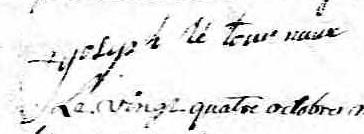 joseph le tourneaux
Le vingt quatre octobres